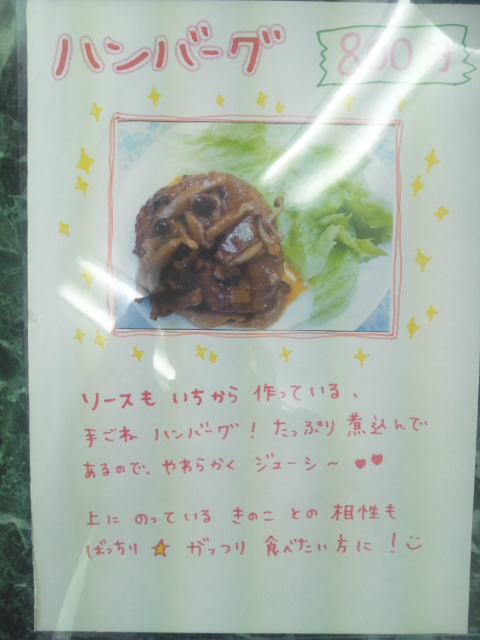 ハンバーグ
800円
ソースも いちから 作っている、
手ごね ハンバーグ! たっぷり 煮込んで
あるので、やわらかく ジューシ〜 ♥♥
上に のっている きのこ との 相性も
ばっちり ★ がっつり 食べたい方に!